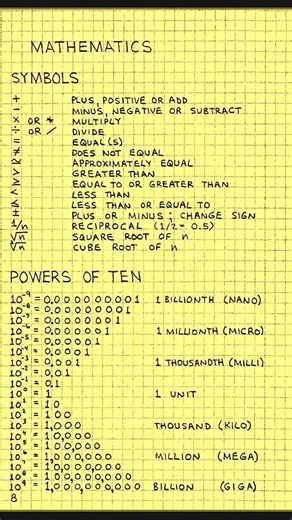 MATHEMATICS
SYMBOLS
+ PLUS, POSITIVE OR ADD
- MINUS, NEGATIVE OR SUBTRACT
× OR * MULTIPLY
÷ OR / DIVIDE
= EQUAL(S)
≠ DOES NOT EQUAL
≈ APPROXIMATELY EQUAL
> GREATER THAN
≥ EQUAL TO OR GREATER THAN
< LESS THAN
≤ LESS THAN OR EQUAL TO
± PLUS OR MINUS; CHANGE SIGN
1/n RECIPROCAL (1/2 = 0.5)
√n SQUARE ROOT OF n
∛n CUBE ROOT OF n
POWERS OF TEN
10⁻⁹ = 0.000000001 1 BILLIONTH (NANO)
10⁻⁸ = 0.00000001
10⁻⁷ = 0.0000001
10⁻⁶ = 0.000001 1 MILLIONTH (MICRO)
10⁻⁵ = 0.00001
10⁻⁴ = 0.0001
10⁻³ = 0.001 1 THOUSANDTH (MILLI)
10⁻² = 0.01
10⁻¹ = 0.1
10⁰ = 1 1 UNIT
10¹ = 10
10² = 100
10³ = 1,000 THOUSAND (KILO)
10⁴ = 10,000
10⁵ = 100,000
10⁶ = 1,000,000 MILLION (MEGA)
10⁷ = 10,000,000
10⁸ = 100,000,000
10⁹ = 1,000,000,000 BILLION (GIGA)
8